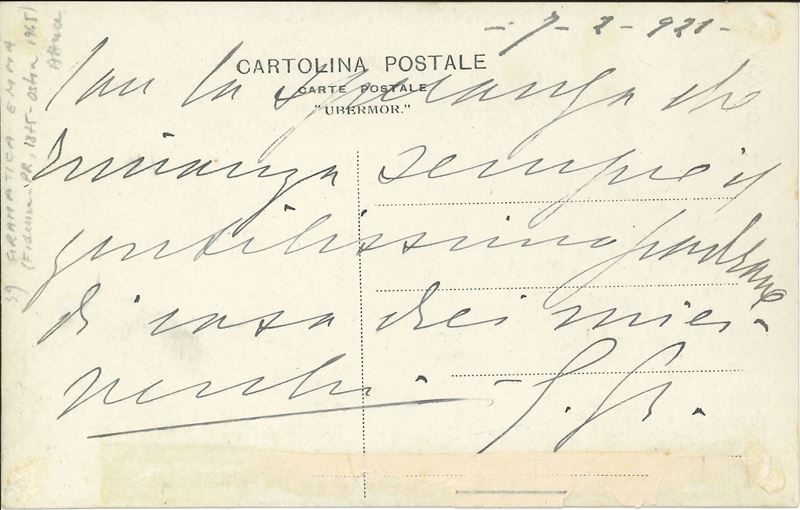 - 7 - 2 - 921 -
CARTOLINA POSTALE
CARTE POSTALE
"UBERMOR."
Con la speranza che
rimanga sempre il
gentilissimo padrone
di casa dei miei
verdi.
- E. Gr.
39 GRAMATICA EMMA
(Fidenza PR, 1875 - Ostia 1965)
Attrice